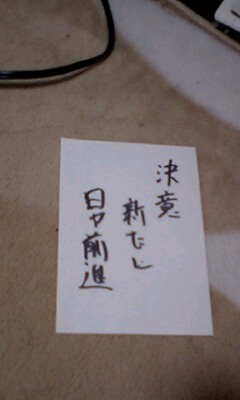 決意
新たに
日々前進